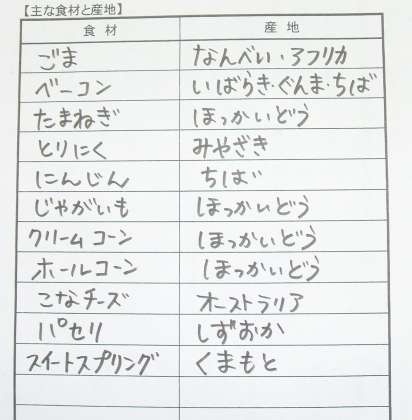 【主な食材と産地】
食材 産地
ごま なんべい・アフリカ
ベーコン いばらき・ぐんま・ちば
たまねぎ ほっかいどう
とりにく みやざき
にんじん ちば
じゃがいも ほっかいどう
クリームコーン ほっかいどう
ホールコーン ほっかいどう
こなチーズ オーストラリア
パセリ しずおか
スイートスプリング くまもと